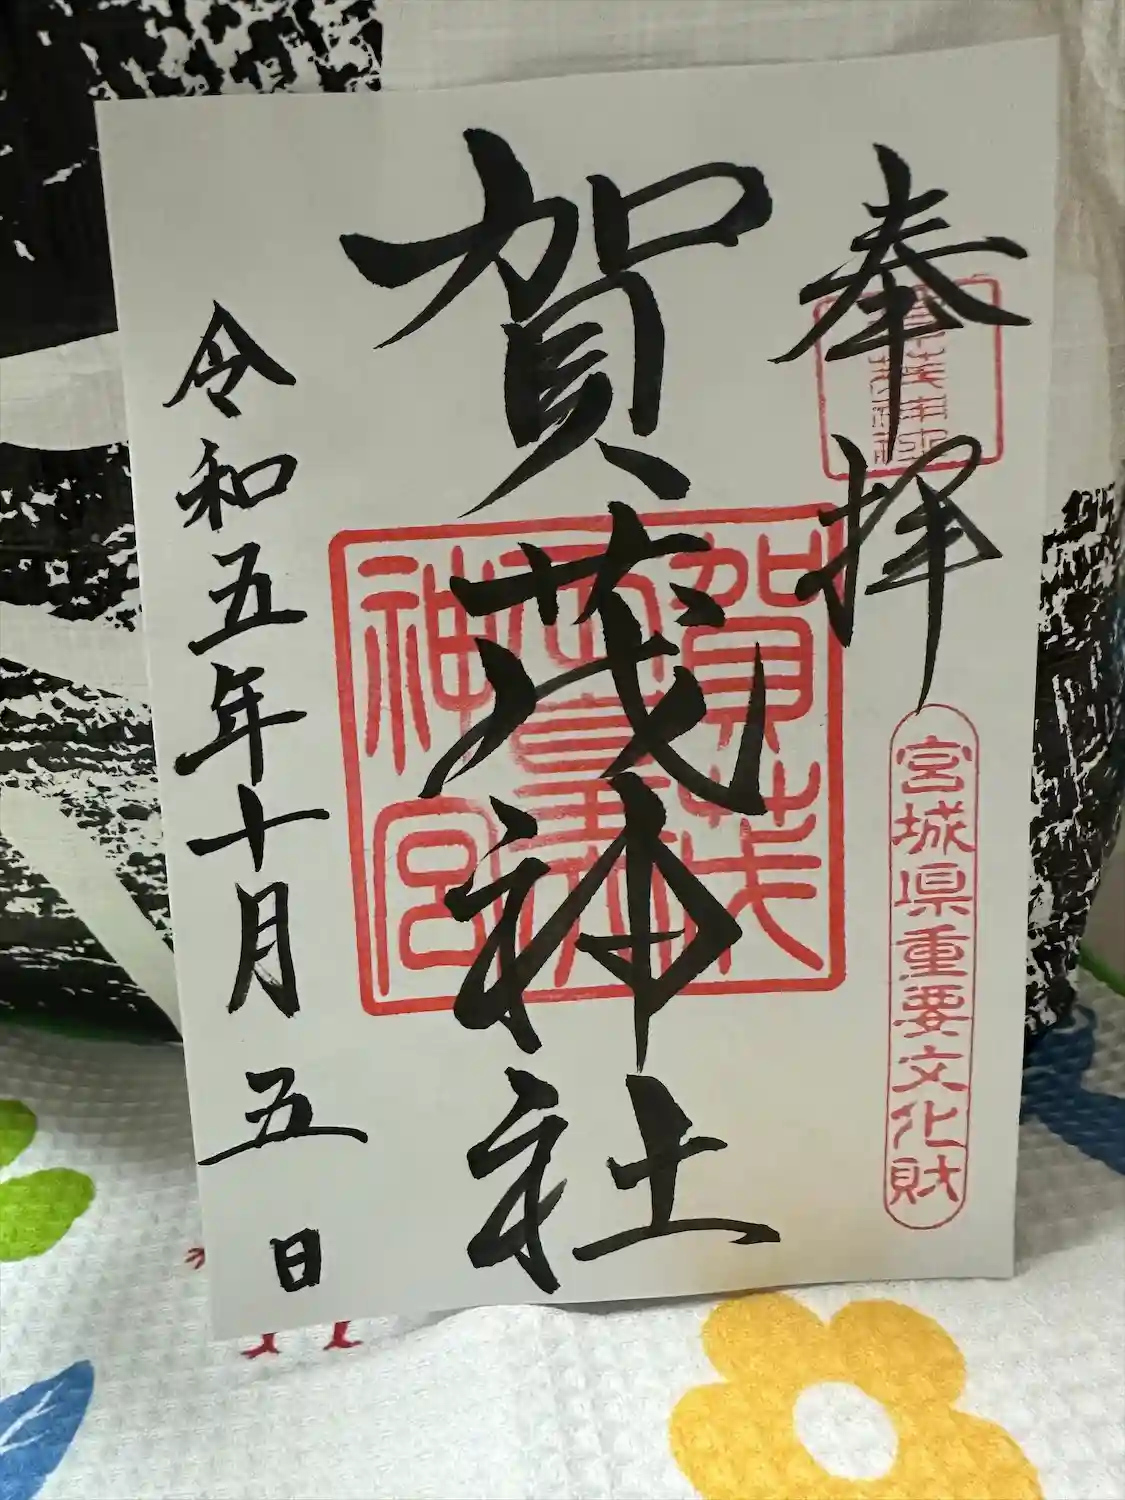 奉拝
宮城県重要文化財
賀茂神社
賀茂
皇
神宮
令和五年十月五日